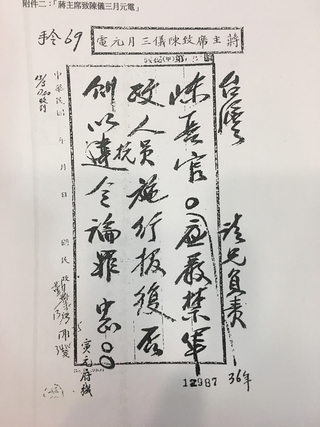 附件二:「蔣主席致陳儀三月元電」
手令 69
蔣主席致陳儀三月元電
台灣 請兄負責
陳長官。應嚴禁軍
政人員施行報復否
則以違抗令論罪
寅元府機
中華民國 年 月 日
12987
36年